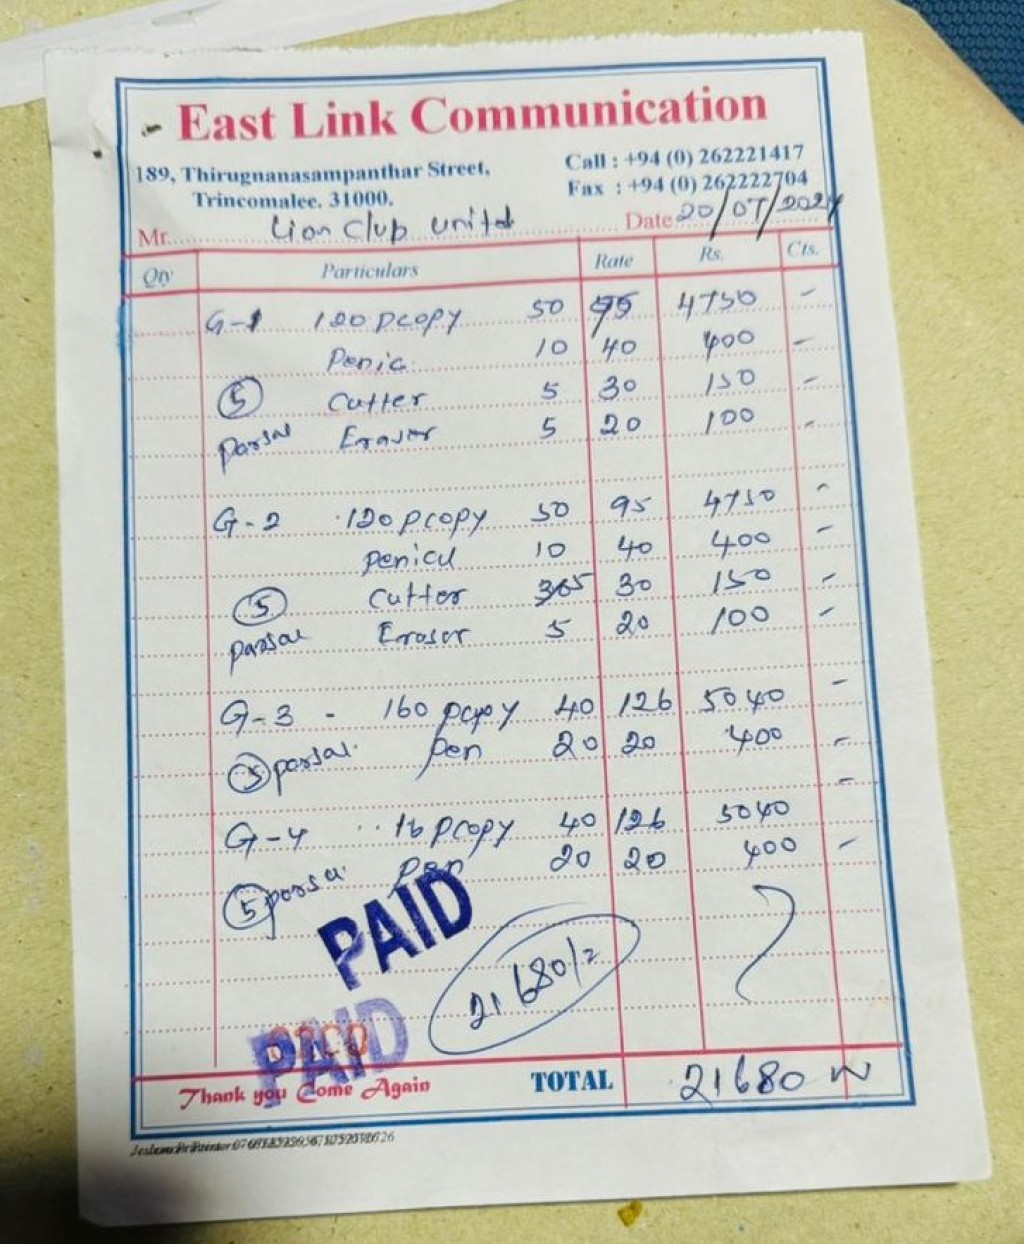 East Link Communication
189, Thirugnanasampanthar Street,
Trincomalee. 31000.
Call : +94 (0) 262221417
Fax : +94 (0) 262222704
Mr. Lion Club United
Date 20/07/2024
Qty Particulars Rate Rs. Cts.
G-1 120 pcopy 50 95 4750 -
Penic 10 40 400 -
5 Cutter 5 30 150 -
parsal Eraser 5 20 100 -
G-2 120 pcopy 50 95 4750 -
penicil 10 40 400 -
5 Cutter 5 30 150 -
parsal Eraser 5 20 100 -
G-3 - 160 pcopy 40 126 5040 -
5 parsal Pen 20 20 400 -
G-4 16 pcopy 40 126 5040 -
5 parsal Pen 20 20 400 -
PAID
21680/=
PAID
Thank you Come Again
TOTAL 21680